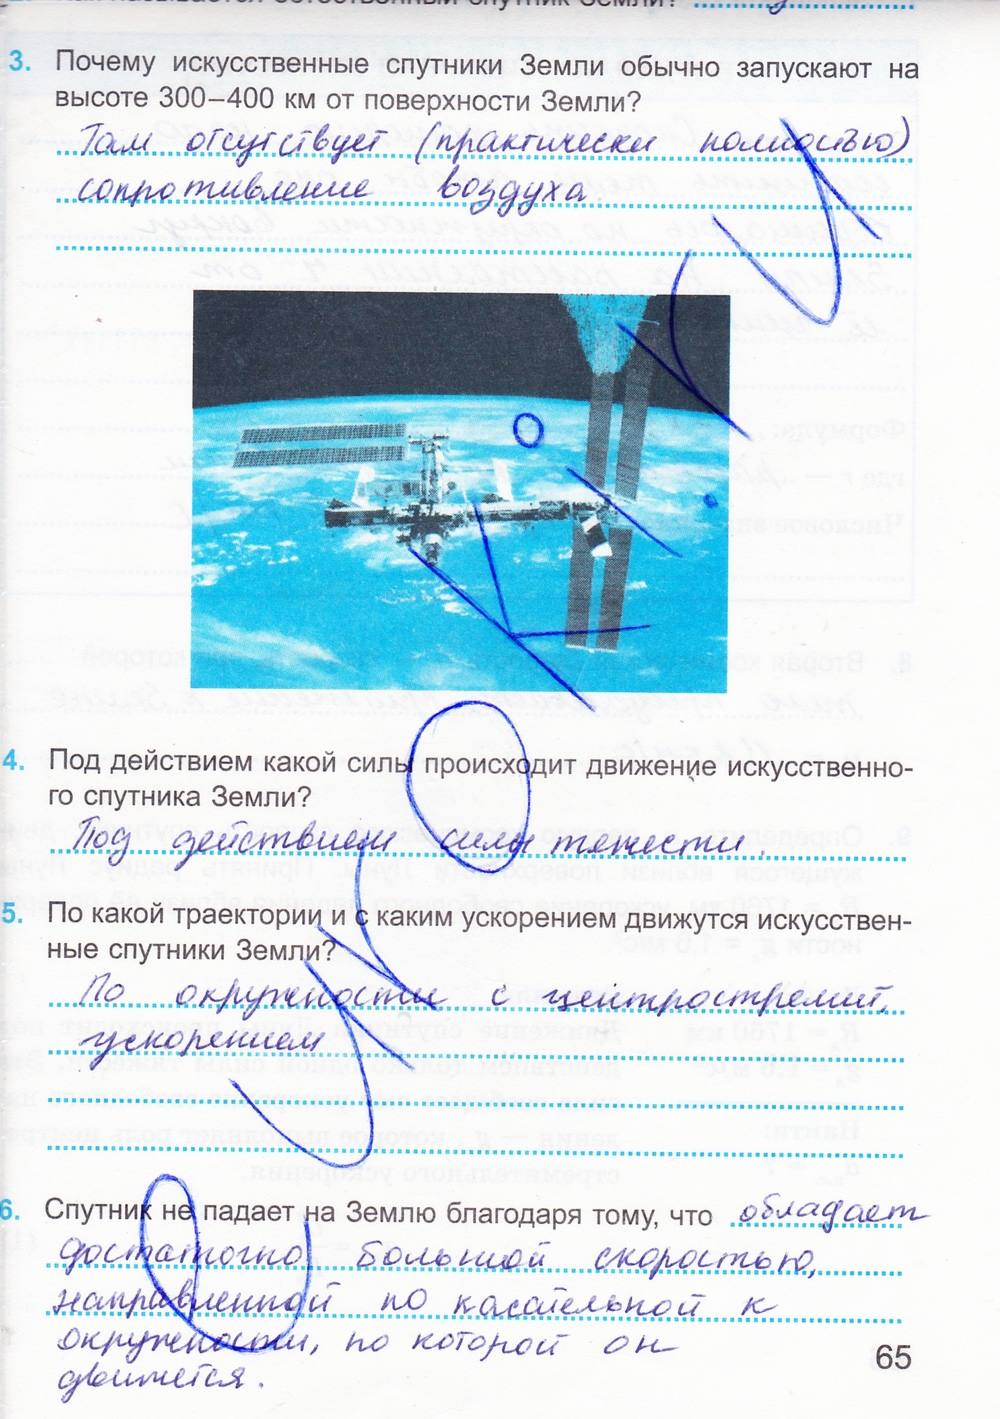 3. Почему искусственные спутники Земли обычно запускают на
высоте 300–400 км от поверхности Земли?
Там отсутствует (практически полностью)
сопротивление воздуха.
4. Под действием какой силы происходит движение искусственно-
го спутника Земли?
Под действием силы тяжести.
5. По какой траектории и с каким ускорением движутся искусствен-
ные спутники Земли?
По окружности с центростремит.
ускорением
6. Спутник не падает на Землю благодаря тому, что обладает
достаточно большой скоростью,
направленной по касательной к
окружности, по которой он
движется.
65